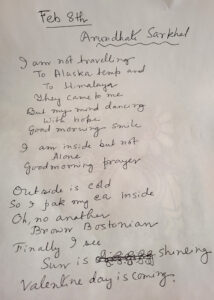 Feb 8th
Arundhati Sarkhel
I am not travelling
To Alaska temp and
To Himalaya
They came to me
But my mind dancing
With hope
Good morning smile
I am inside but not
Alone
Goodmorning prayer
Outside is cold
So I pak my ea inside
Oh, no another
Brown Bostonian
Finally I see
Sun is shineing
Valentine day is coming.